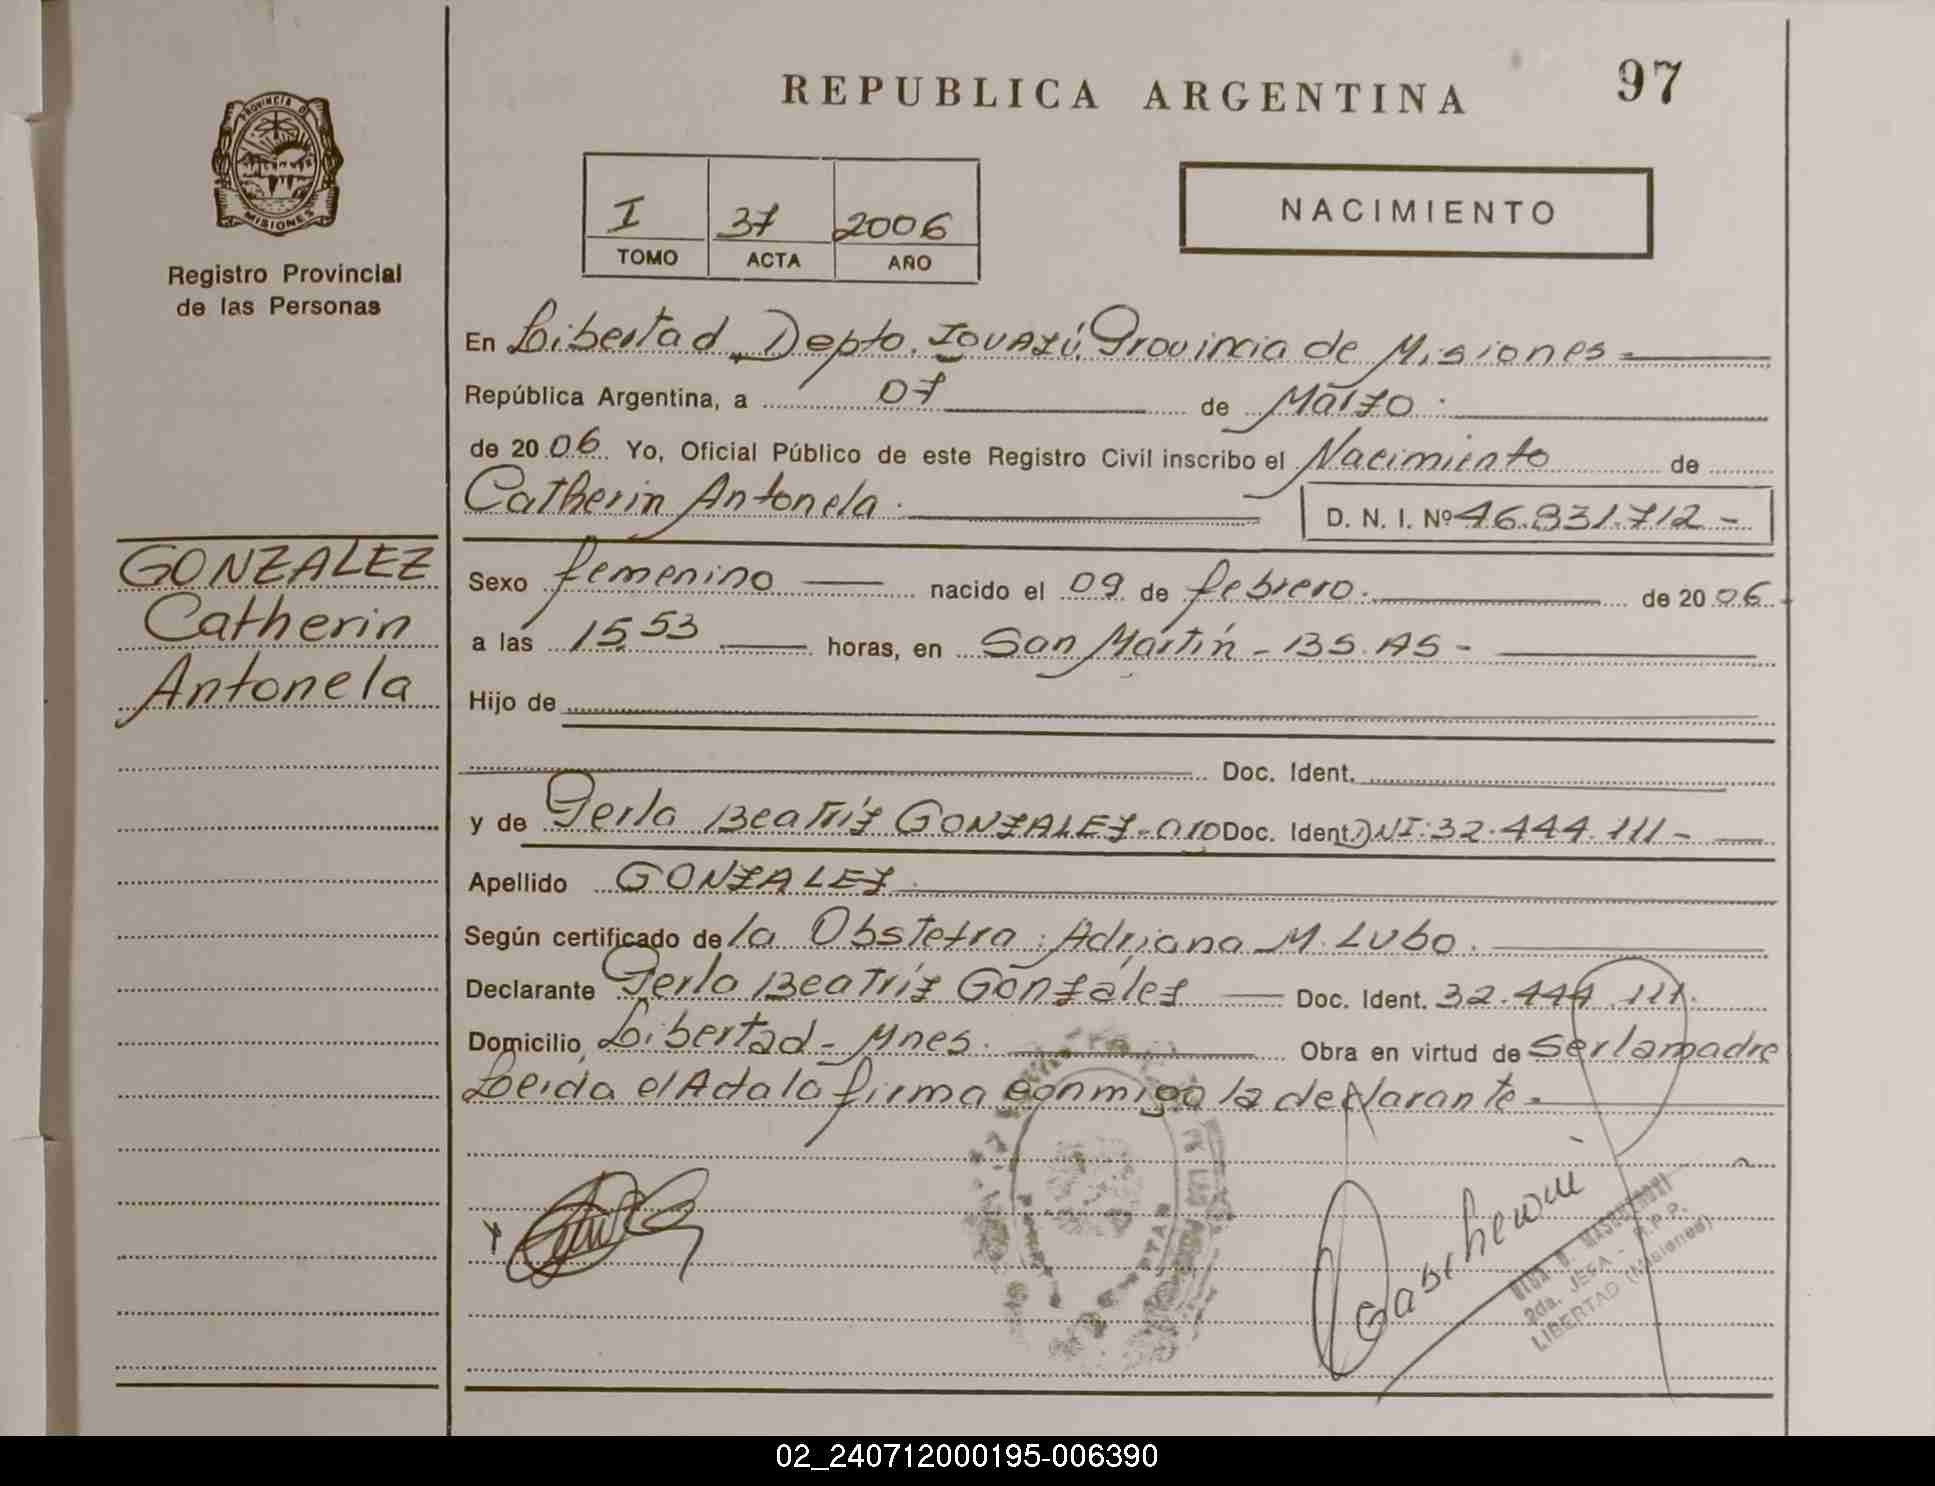 REPUBLICA ARGENTINA
97
PROVINCIA DE
MISIONES
Registro Provincial
de las Personas
I 37 2006
TOMO ACTA AÑO
NACIMIENTO
En Libertad, Depto. IGUAZÚ, Provincia de Misiones -
República Argentina, a 07 de Marzo.
de 2006 Yo, Oficial Público de este Registro Civil inscribo el Nacimiento de
Catherin Antonela. D. N. I. Nº 46.831.712 -
GONZALEZ
Catherin
Antonela
Sexo femenino nacido el 09 de febrero. de 2006.
a las 15,53 horas, en San Martín - BS. AS -
Hijo de
Doc. Ident.
y de Perla Beatríz GONZALEZ - Doc. Ident. DNI: 32.444.111 -
Apellido GONZALEZ.
Según certificado de la Obstetra: Adriana M. Lubo.
Declarante Perla Beatríz González Doc. Ident. 32.444.111.
Domicilio Libertad - Mnes. Obra en virtud de ser la madre
Leida el Acta la firma conmigo la declarante -
2da. JEFA - R.P.P.
LIBERTAD (Misiones)
02_240712000195-006390